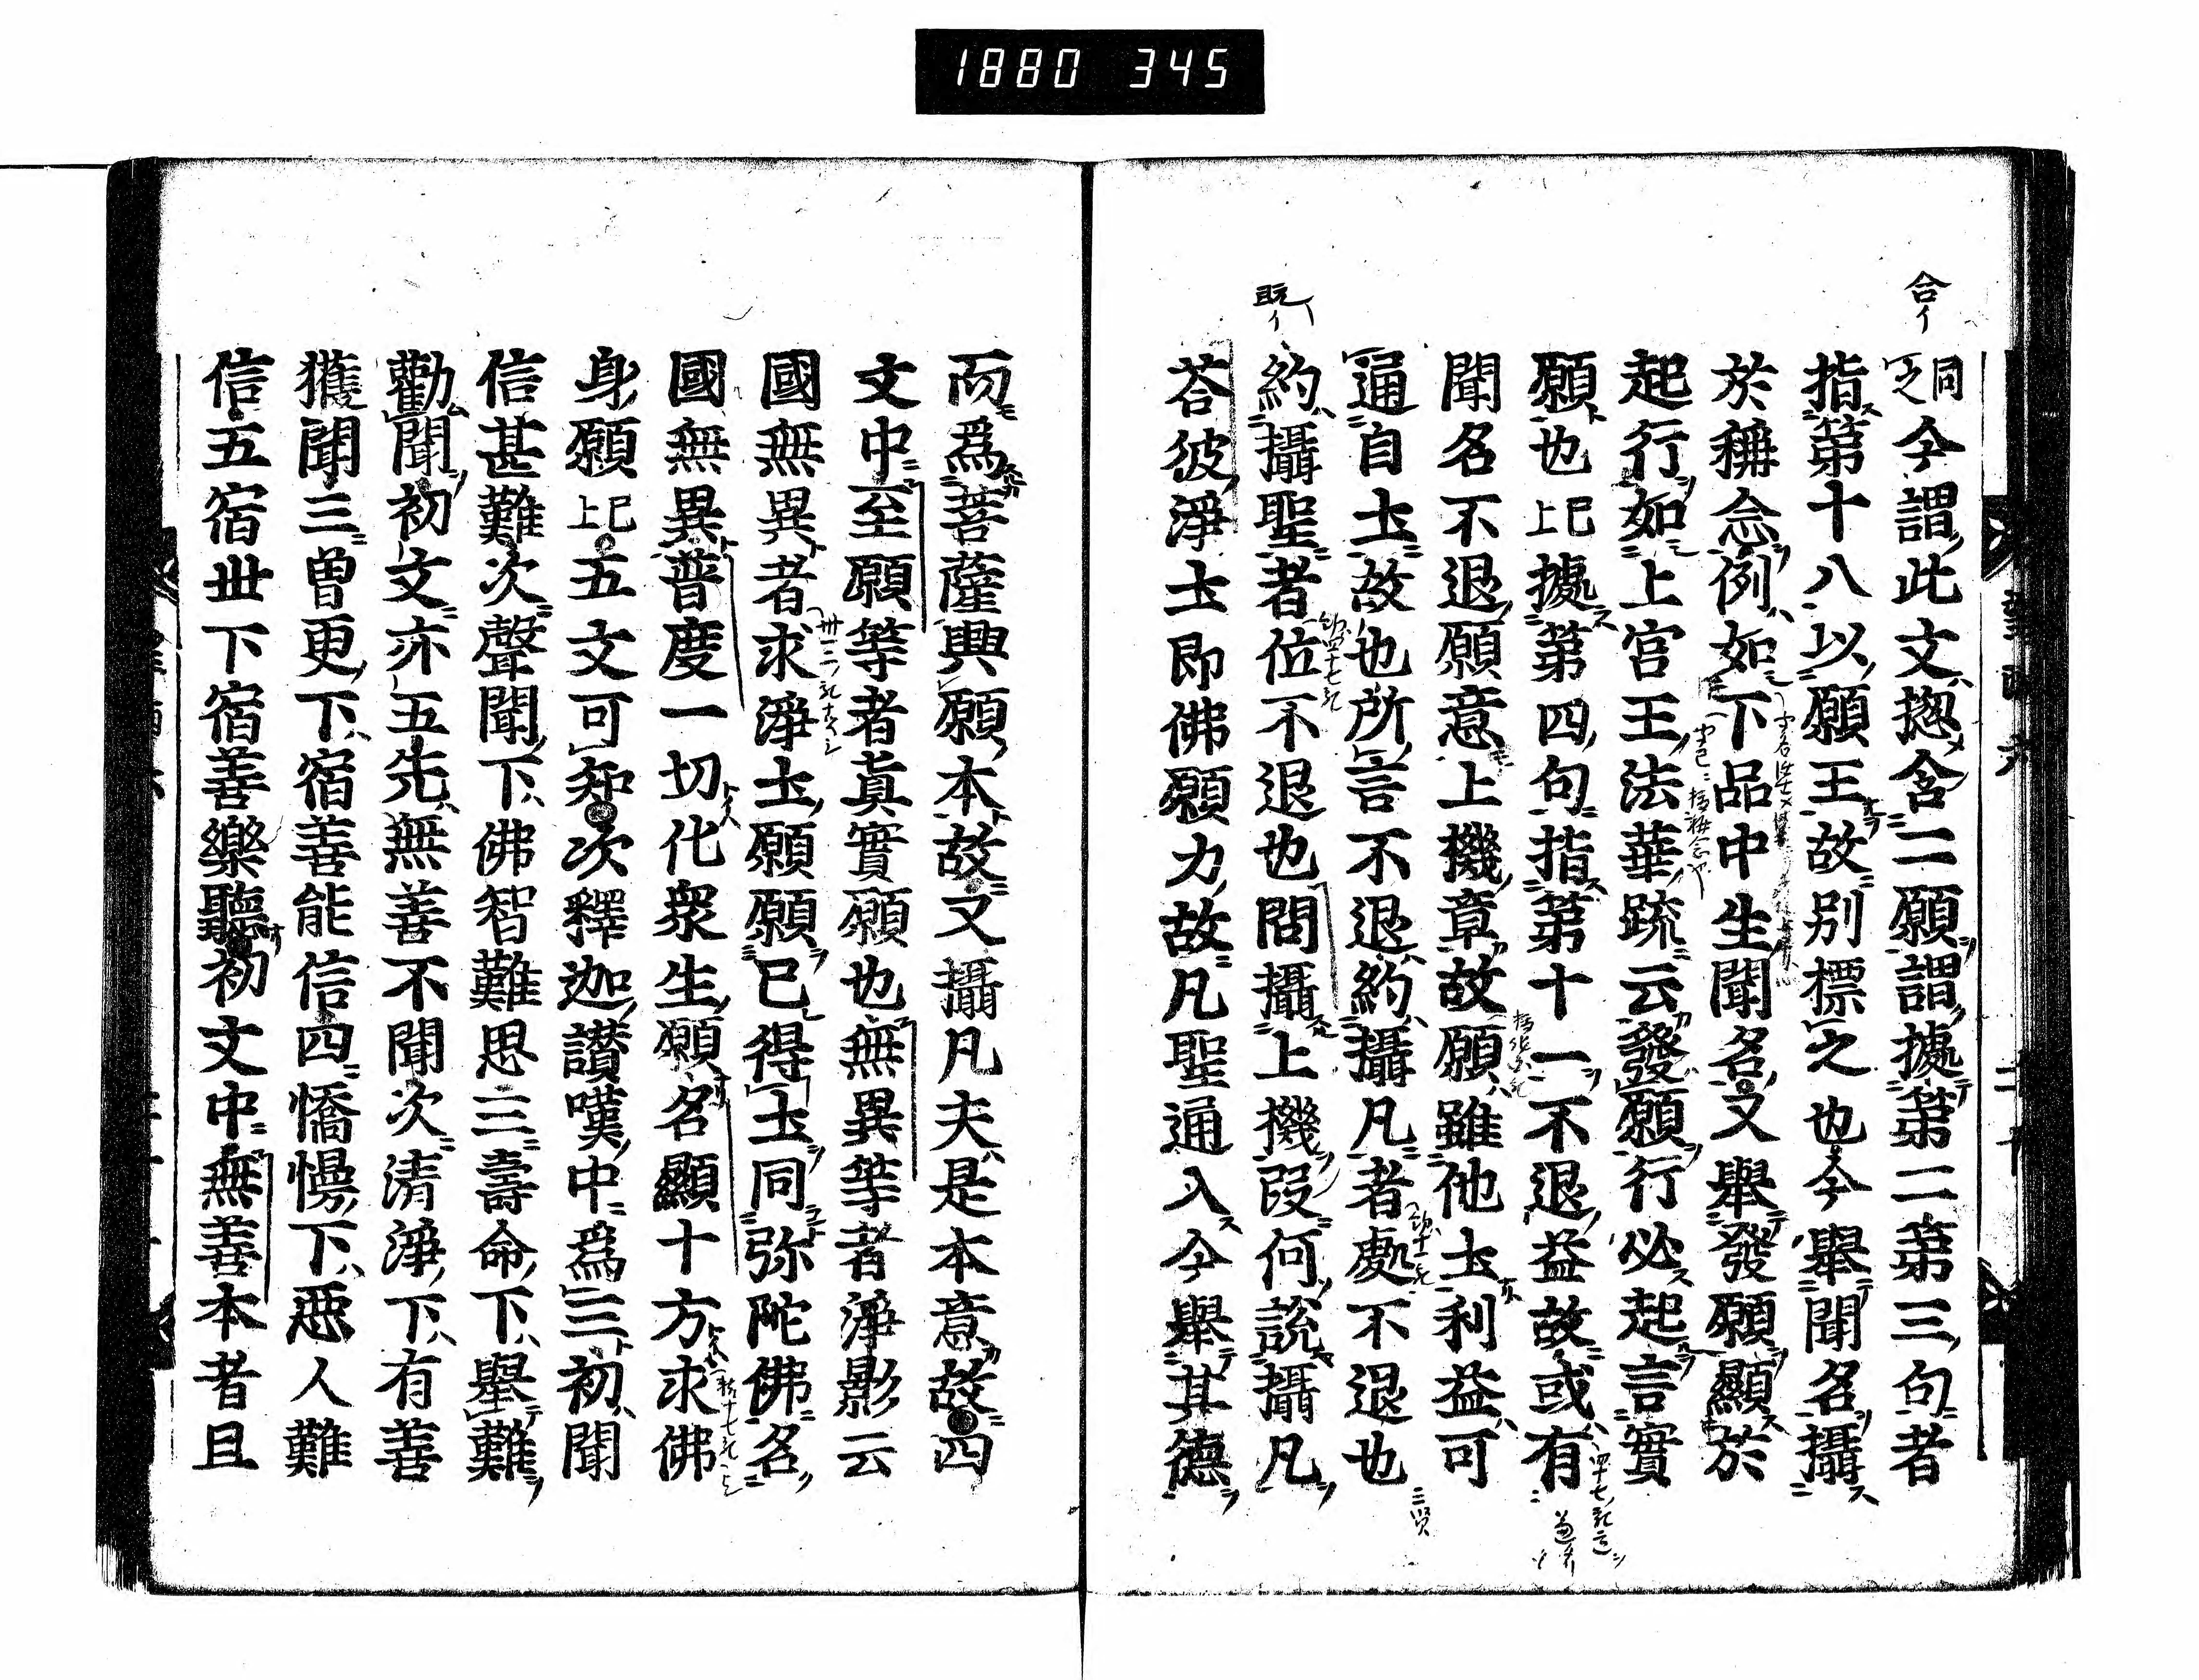 1880 345
合イ
同之今謂此文惣含二願謂據第二第三句者
指第十八以願王故別標之也今舉聞名攝
於稱念例如下品中生聞名又舉發願顯於
起行如上宮王法華疏云發願行必起言實
願也已上據第四句指第十一不退益故或有
聞名不退願意上機章故願雖他土利益可
通自土故也所言不退約攝凡者處不退也
既イ
約攝聖者位不退也問攝上機段何說攝凡
荅彼淨土即佛願力故凡聖通入今舉其德
而爲菩薩興願本故又攝凡夫是本意故四
文中至願等者眞實願也無異等者淨影云
國無異者求淨土願願已得土同弥陀佛名
國無異普度一切化衆生願名顯十方求佛
身願已上五文可知次釋迦讃嘆中爲三初聞
信甚難次聲聞下佛智難思三壽命下舉難
勸聞初文亦五先無善不聞次清淨下有善
獲聞三曽更下宿善能信四憍慢下惡人難
信五宿丗下宿善樂聽初文中無善本者且